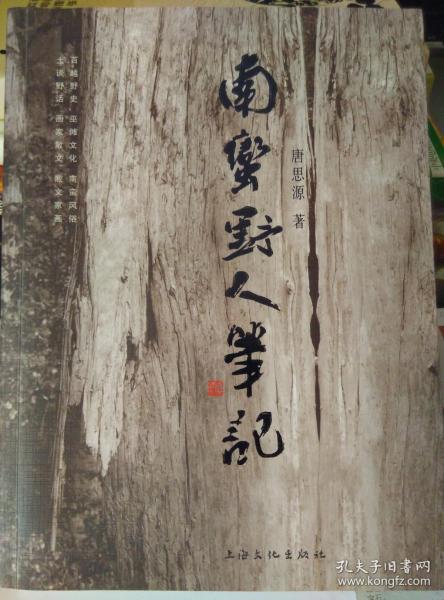 南蛮野人筆記
唐思源 著
百越野史 巫傩文化 南蛮风俗
土谈野话 画家散文 散文家画
上海文化出版社
孔夫子旧书网
www.kongfz.com